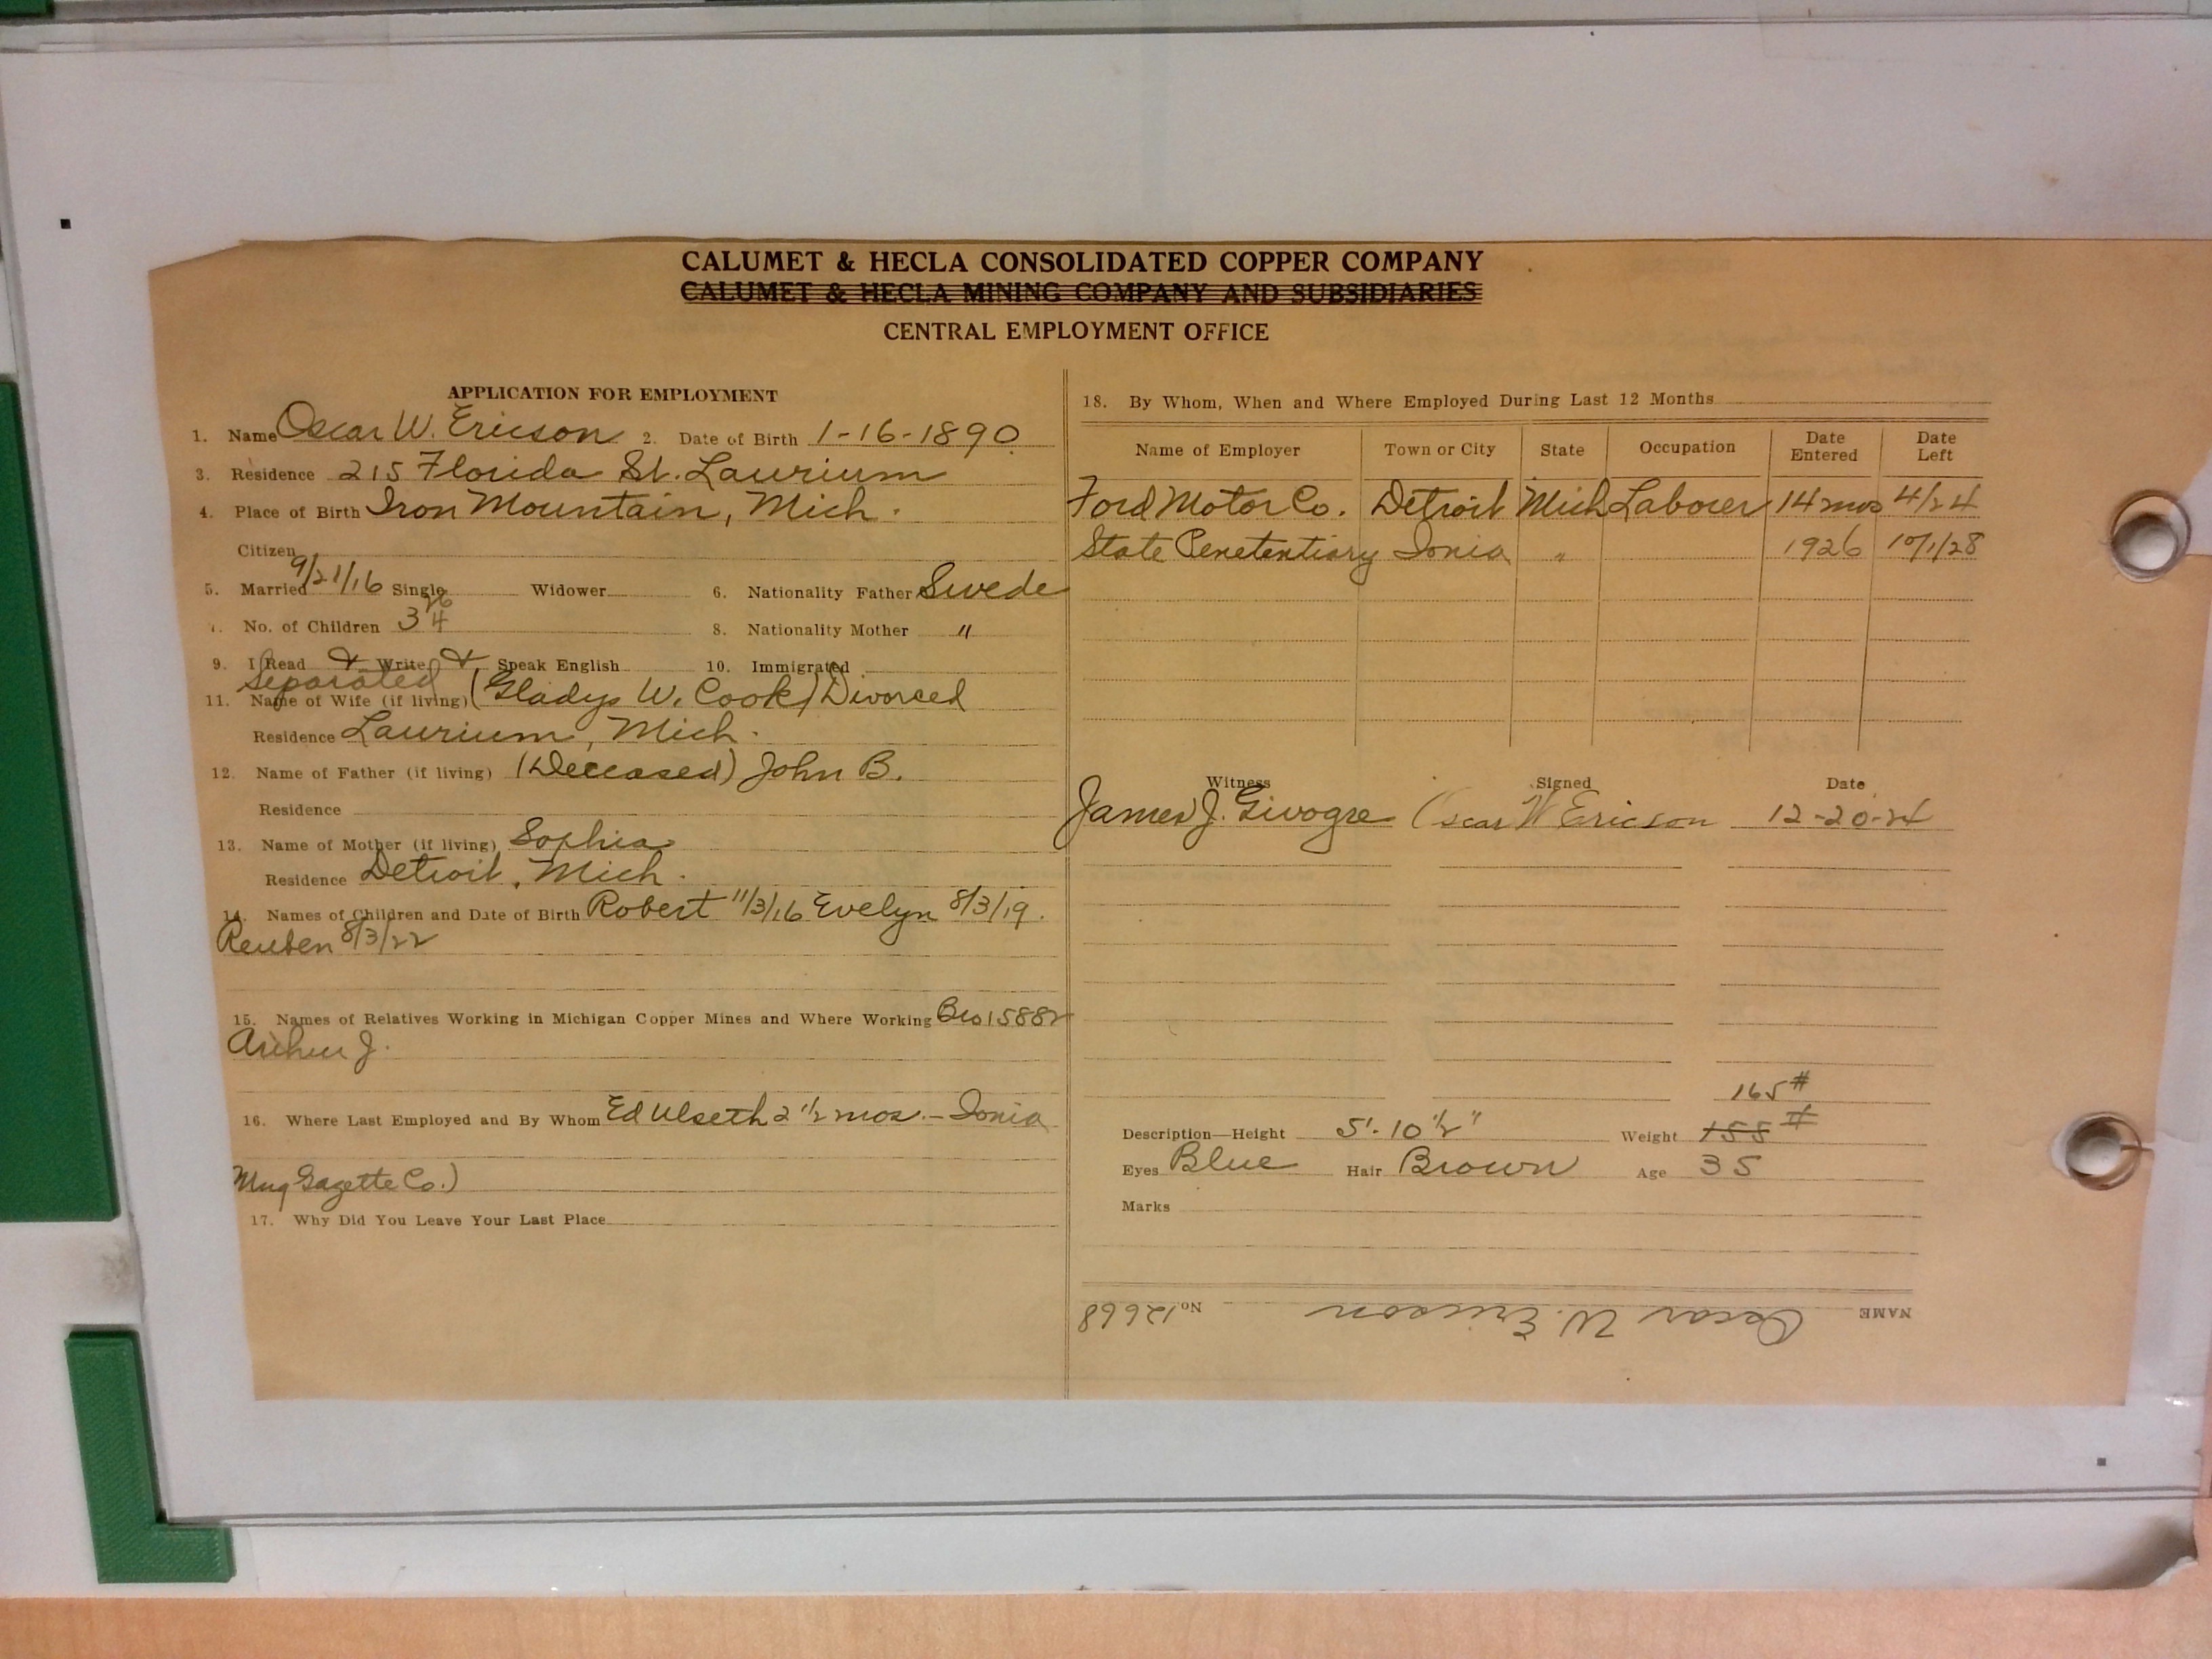 CALUMET & HECLA CONSOLIDATED COPPER COMPANY
CALUMET & HECLA MINING COMPANY AND SUBSIDIARIES
CENTRAL EMPLOYMENT OFFICE
APPLICATION FOR EMPLOYMENT
1. Name Oscar W. Ericson 2. Date of Birth 1-16-1890
3. Residence 215 Florida St. Laurium
4. Place of Birth Iron Mountain, Mich.
Citizen
5. Married 9/21/16 Single Widower 6. Nationality Father Swede
7. No. of Children 3 4 8. Nationality Mother "
9. I Read & Write & Speak English 10. Immigrated
Separated
11. Name of Wife (if living) (Gladys W. Cook) Divorced
Residence Laurium, Mich.
12. Name of Father (if living) (Deceased) John B.
Residence
13. Name of Mother (if living) Sophia
Residence Detroit, Mich.
14. Names of Children and Date of Birth Robert 11/3/16 Evelyn 8/3/19.
Reuben 8/3/22
15. Names of Relatives Working in Michigan Copper Mines and Where Working Bro 15882
Arthur J.
16. Where Last Employed and By Whom Ed Ulseth 2 1/2 mos. - Ionia
Gazette Co.)
17. Why Did You Leave Your Last Place
18. By Whom, When and Where Employed During Last 12 Months
Name of Employer Town or City State Occupation Date Entered Date Left
Ford Motor Co. Detroit Mich Laborer 14 mos 4/24
State Penetentiary Ionia " 1926 10/1/28
Witness Signed Date
James J. Givogre Oscar W Ericson 12-20-24
165#
Description—Height 5'-10 1/2" Weight 155#
Eyes Blue Hair Brown Age 35
Marks
NAME Oscar W. Ericson No. 12668